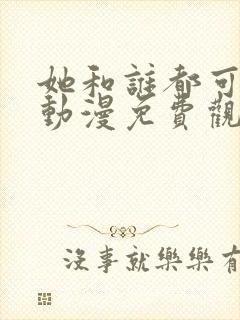 她和誰都可
動漫免費觀
沒事就樂樂有